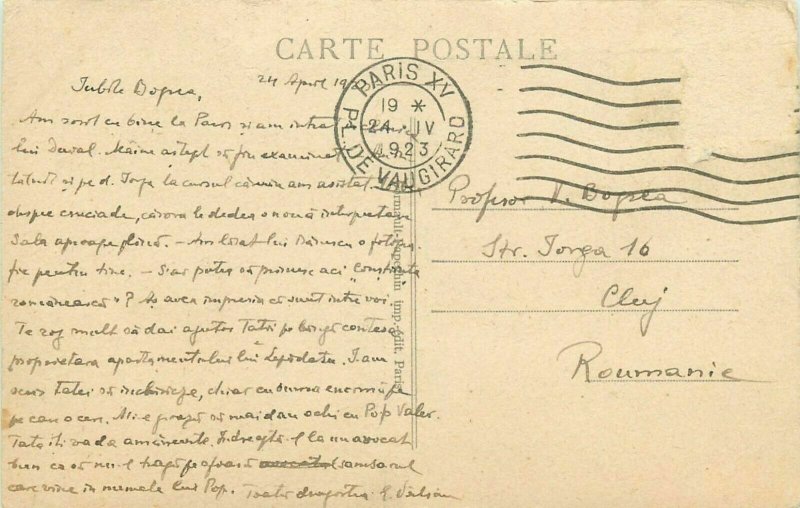 CARTE POSTALE
24 April 192
PARIS XV
19 *
24 - IV
1923
Pl. DE VAUGIRARD
Iubite Bogrea,
Am sosit cu bine la Paris și am intrat
lui Duval. Mâine aștept să fiu examinat
tatnăl și pe d. Iorga la cursul căruia am asistat
despre cruciade, cărora le dedea o nouă interpretare
Sala aproape plină. - Am luat lui o fotogra
fie pentru tine. - S'ar putea să primesc aci "
românească"? Aș avea impresia că sunt între voi.
Te rog mult să dai ajutor Tatei pe lângă contesa
proprietara apartamentului lui Lepădatu. I-am
scris Tatei să închirieze, chiar cu suma enormă pe
pe care o cere. Mi-e groază să mai dau ochi cu Pop Valer.
Tata îți va da amănunte. Îndreaptă-l la un avocat
bun ca să nu-l tragă pe sfoară samsarul
care vine în numele lui Pop. Toată dragostea
Profesor V. Bogrea
Str. Iorga 16
Cluj
Roumanie
imp.-édit. Paris